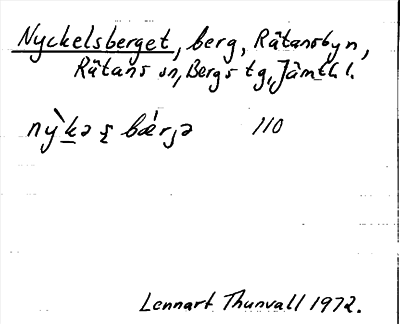 Nyckelsberget, berg, Rätansbyn,
Rätans sn, Bergs tg, Jämtl l.
110
Lennart Thunvall 1972.